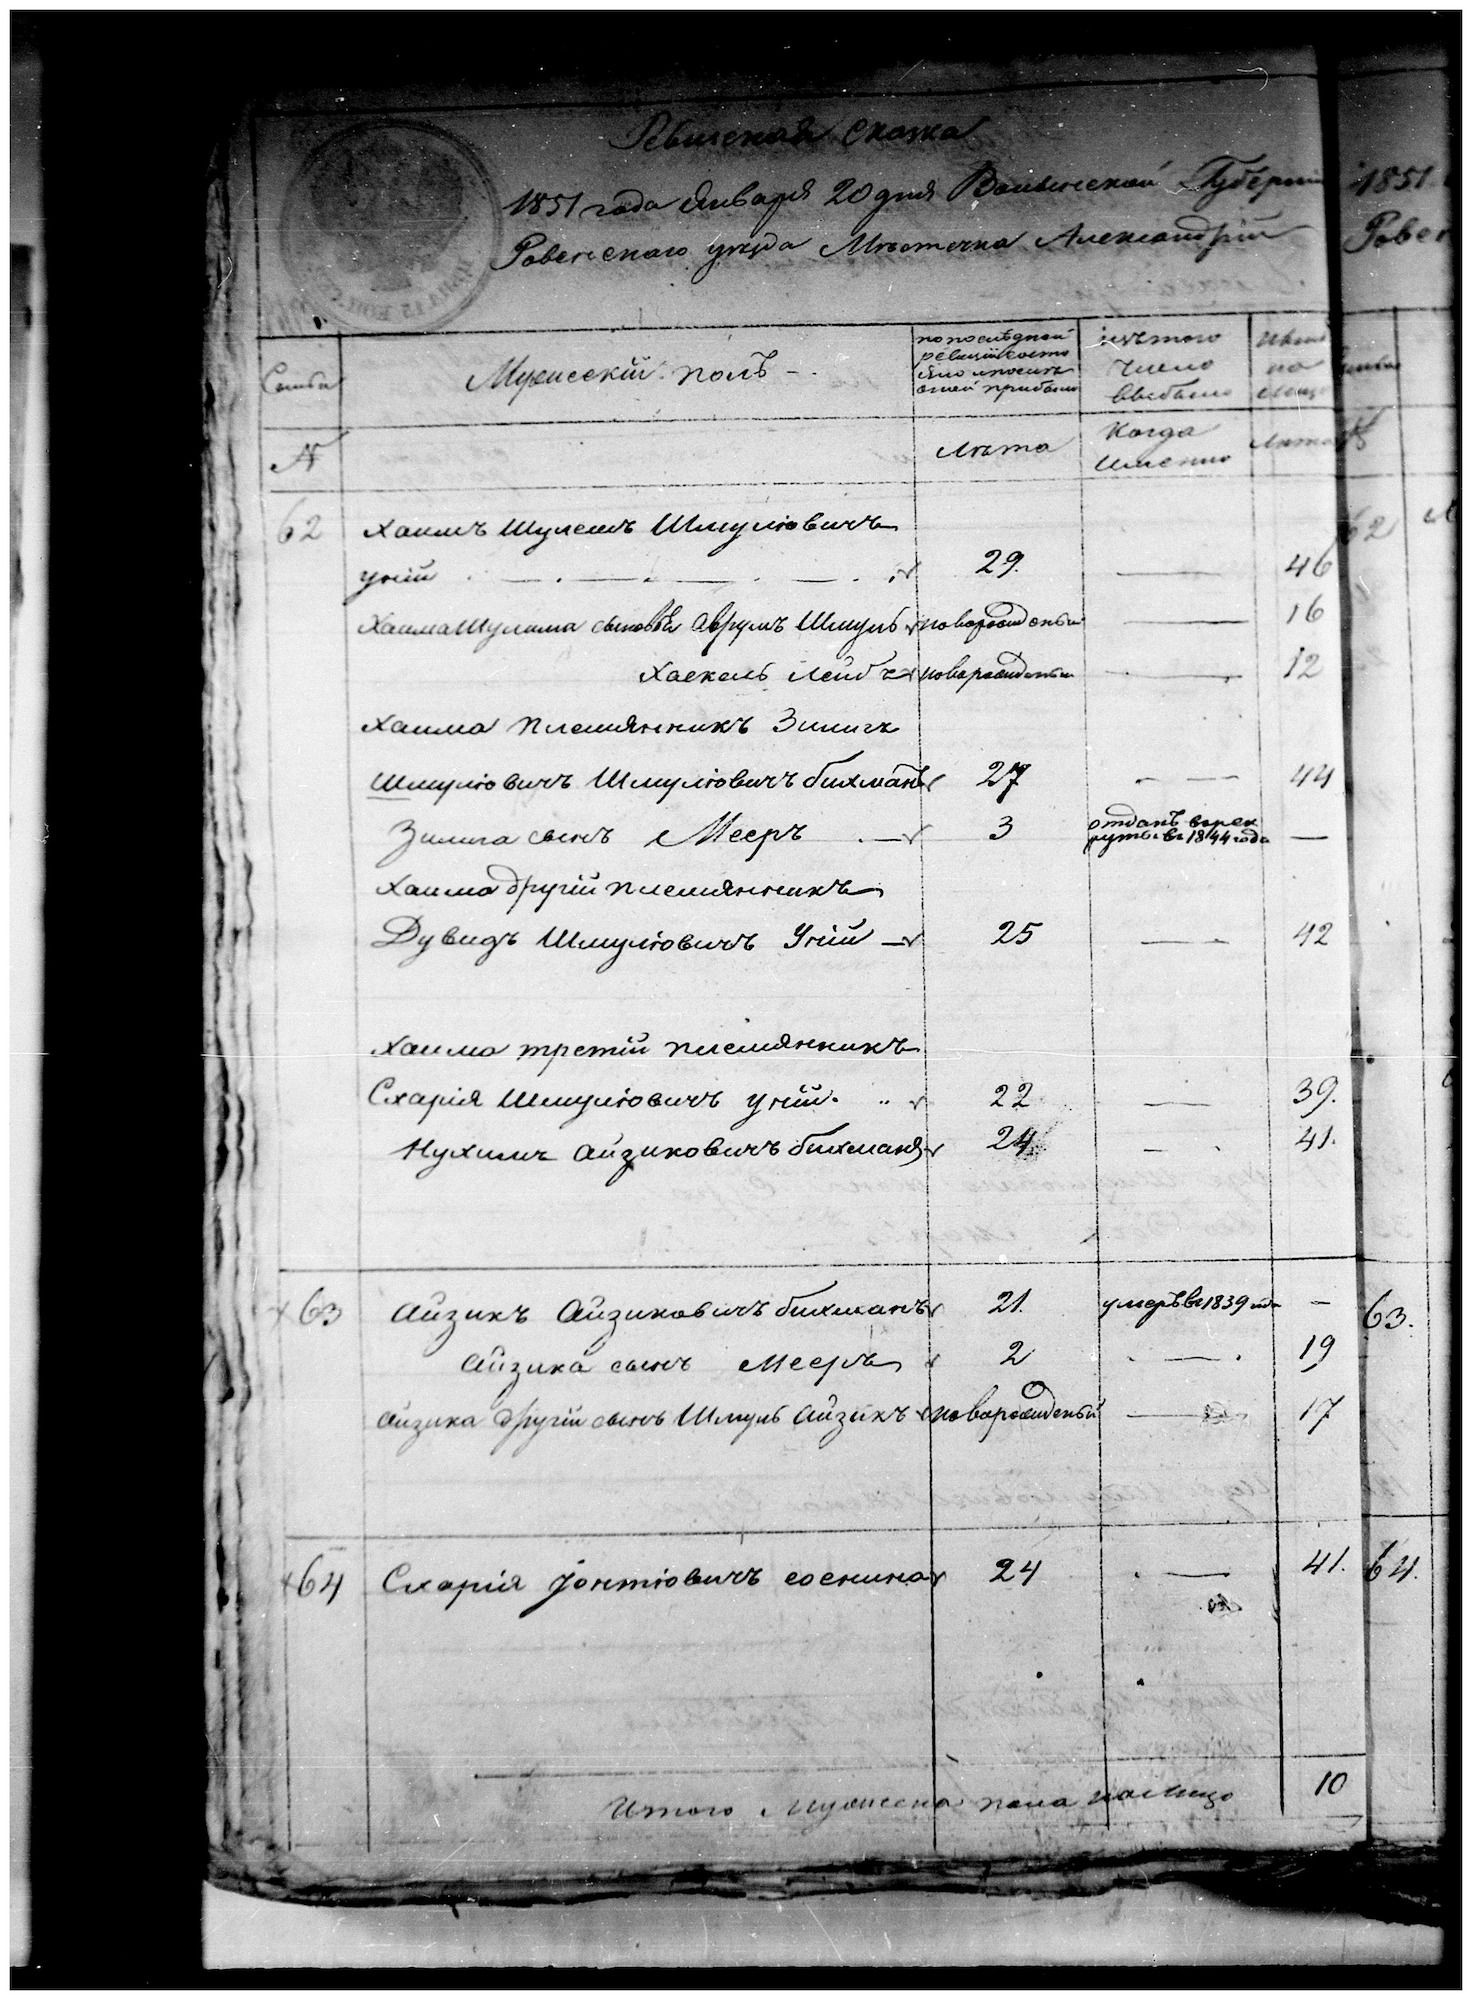 Ревизская сказка
1851 года Января 20 дня Волынской Губернии
Ровенского уезда Местечка Александрiи
Семьи
Мужескiй полъ
по последней ревизiи состояло и после оной прибыло
изъ того число выбыло
ныне на лицо
N
Лета
Когда именно
Лета
62 Хаимъ Шулемъ Шмулiовичъ
Унiй 29. — 46
Хаима Шулима сыновья Аврумъ Шмуль новорожденый — 16
Хаскель Лейбъ новорожденый — 12
Хаима племянникъ Зилигъ
Шмулiовичъ Шмулiовичъ бихманъ 27 — 44
Зилига сынъ Мееръ 3 отданъ в рекруты въ 1844 года —
Хаима другiй племянникъ
Дувидъ Шмулiовичъ Унiй 25 — 42
Хаима третiй племянникъ
Схарiя Шмулiовичъ Унiй 22 — 39.
Нухимъ Айзиковичъ бихманъ 24 — 41.
63 Айзикъ Айзиковичъ бихманъ 21. умеръ въ 1839 года —
Айзика сынъ Мееръ 2 — 19
Айзика другiй сынъ Шмуль Айзикъ новорожденый — 17
64 Схарiя Iонтiовичъ соснина 24 — 41.
Итого Мужеска пола налицо 10
1851
Ровен
62
63.
64.